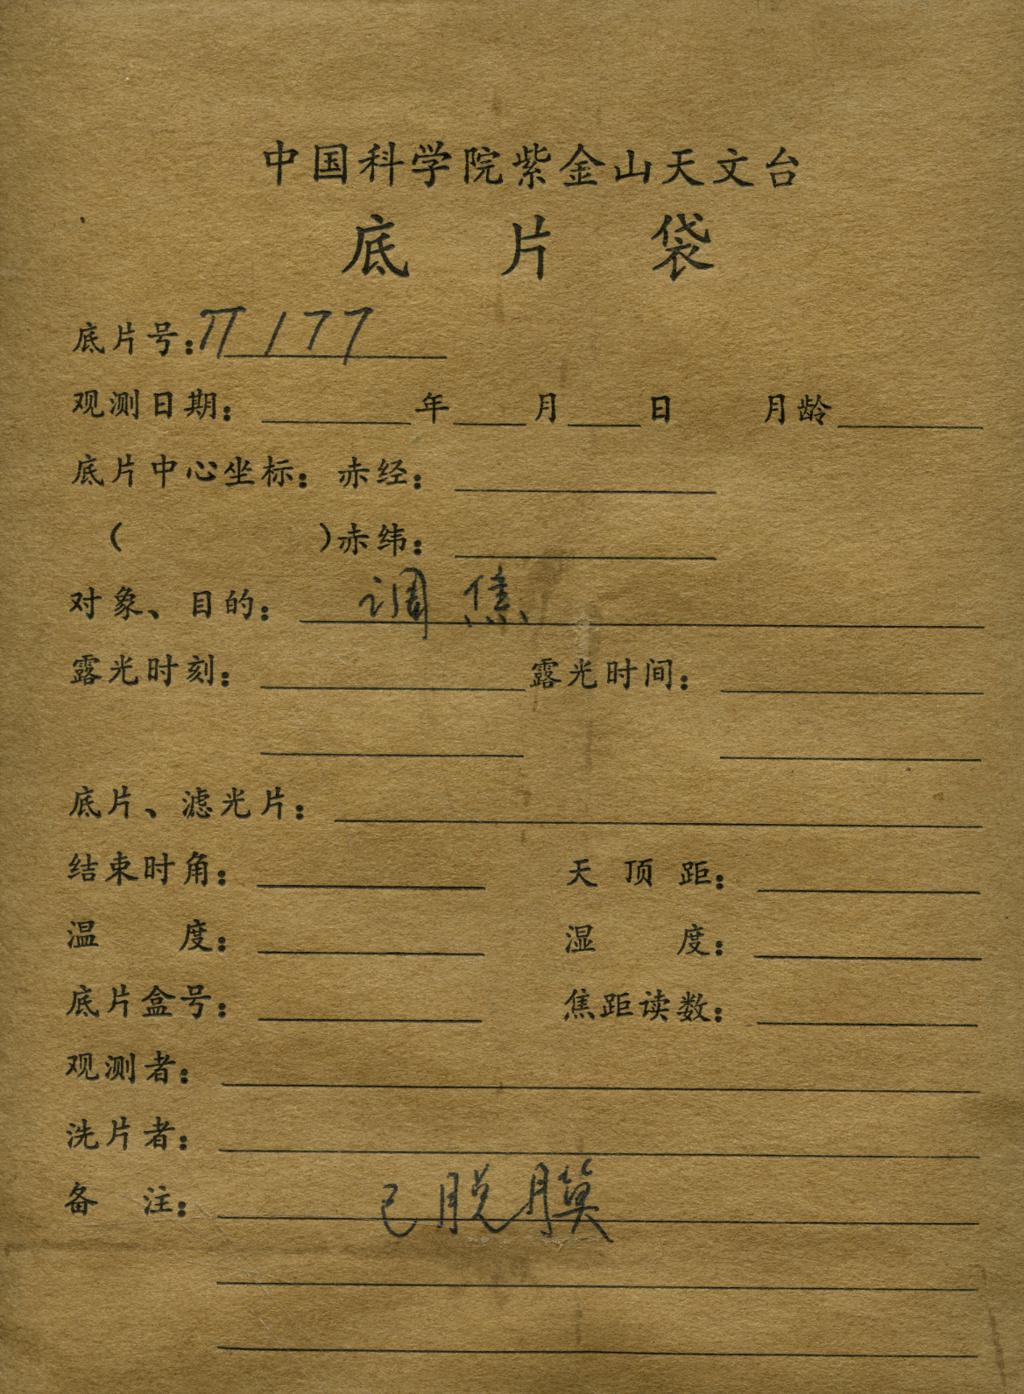 中国科学院紫金山天文台
底片袋
底片号：π177
观测日期：年月日 月龄
底片中心坐标：赤经：
（ ）赤纬：
对象、目的：调焦
露光时刻： 露光时间：
底片、滤光片：
结束时角： 天顶距：
温度： 湿度：
底片盒号： 焦距读数：
观测者：
洗片者：
备注：已脱膜